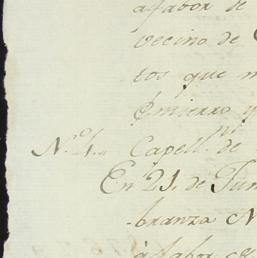 afabor de
vecino de
tos que
Entierro y
N.º 4. Capell.ⁿ de
En 21. de Jun
branza N
afabor de